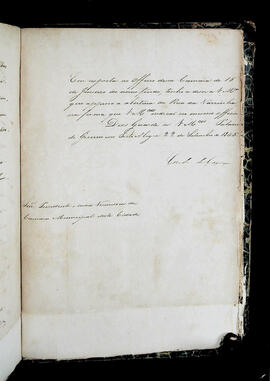 Em resposta ao Officio dessa Camara de 18
de Janeiro do anno findo, tenho a dizer a V. M.ces
que approvo a abertura da Rua da
na forma que V. M.ces no mesmo officio.
Deos Guarde a V. M.ces Palacio
do Governo em 22 de Setembro de 1845
Snr. Presidente, e mais Vereadores da
Camara Municipal desta Cidade